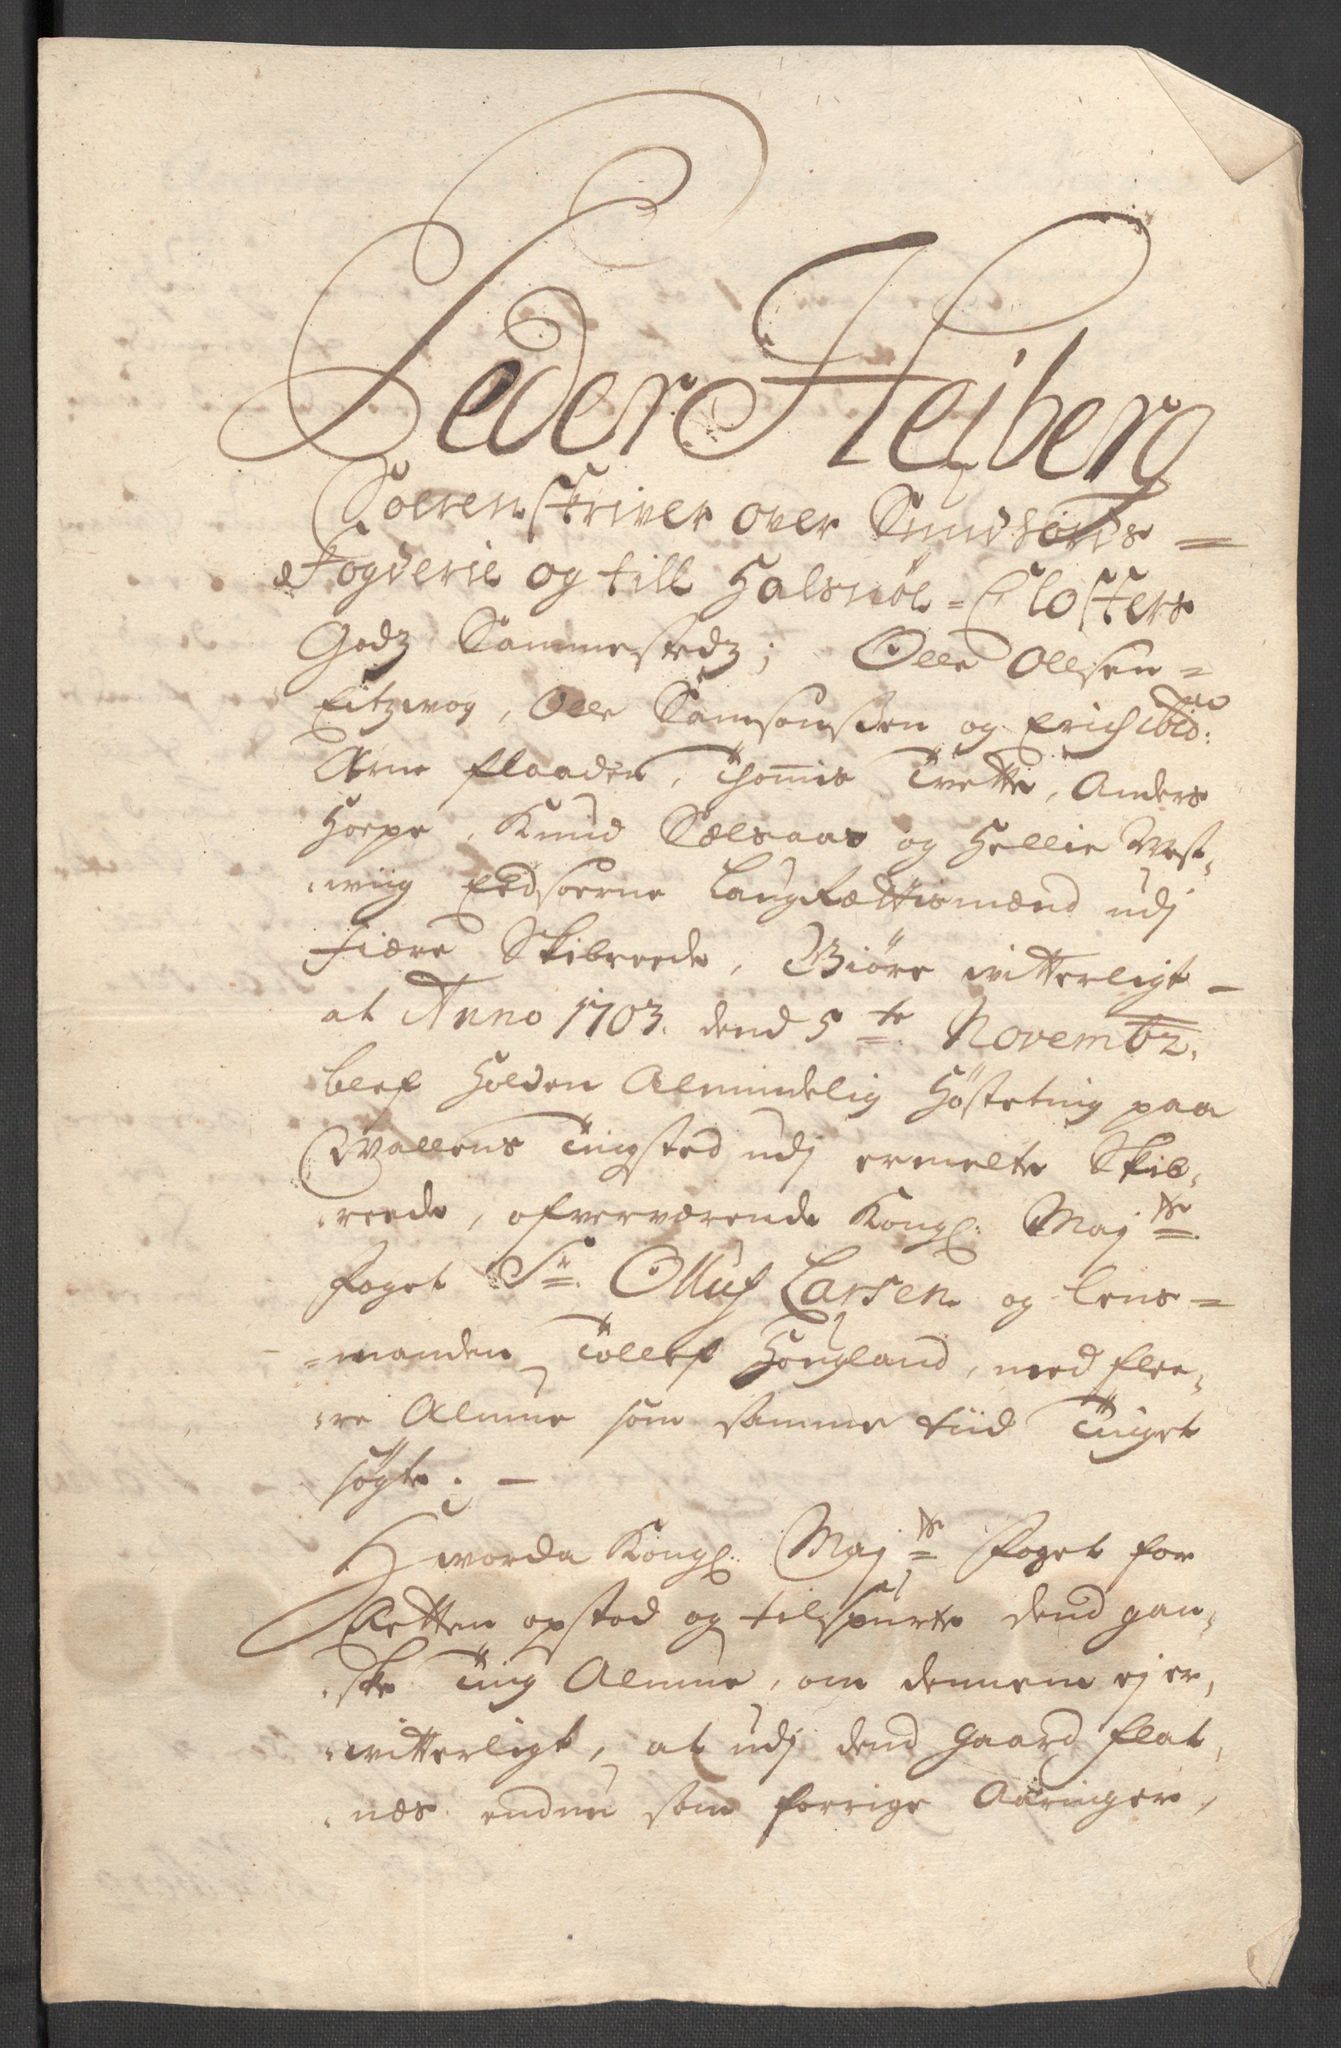 Peder Heiberg
Soerenskriver over Sundhords =
Fogderie og till Halsnöe = Closters
Godz Sammestedz; Olle Olsen =
Eitzwog, Olle Samsonsøen og Erich ibid:
Arne flaaden, Thomis Tvette, Anders
Hoepe, Knud Sælsaas og Hellie Vest,
wiig Eedsoerne Laugrættismænd udj
Fiære Skibreede, Giöre witterligt –
at Anno 1703. dend 5te Novembr.
blef holden Almindelig Høsteting paa
Wallens Tingsted udj ermelte Skib,
reede, ofverværende Kongl: Majts
foget Sr. Olluf Larsen og lens =
manden Tollef Hougland, med flee,
re Almue som samme tiid Tinget
søgte. –
Hvorda Kongl: Majts foget for
Retten opstod og tilspurte dend gan,
ske Ting Almue, om dennem ej er,
witterligt, at udj dend gaard flat,
næs endnu som forrige Aaringer,